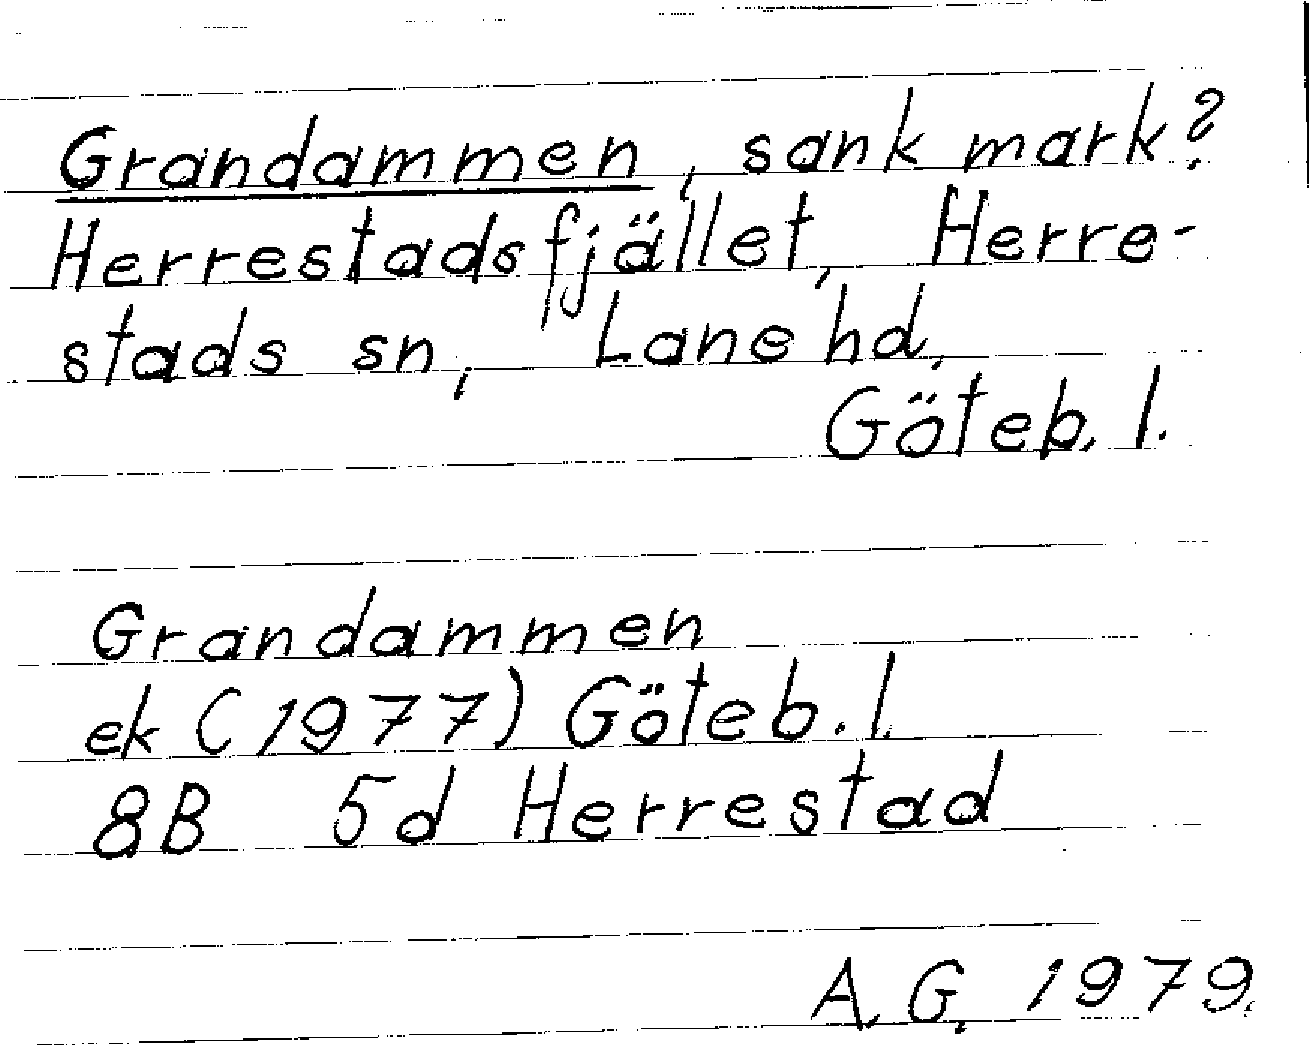 Grandammen, sank mark?
Herrestadsfjället, Herre-
stads sn, Lane hd,
Göteb. l.
Grandammen
ek (1977) Göteb. l.
8B 5d Herrestad
A. G. 1979.